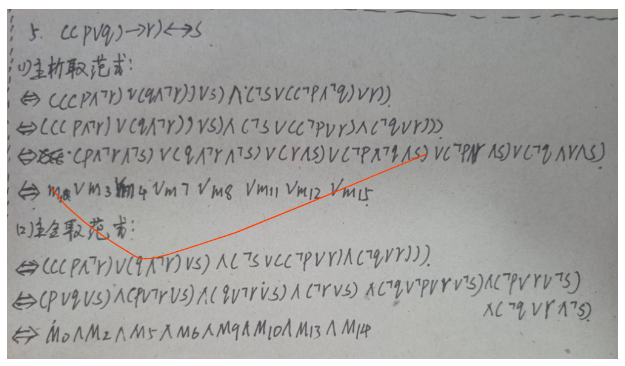 5. ((p∨q)→r)↔s
(1)主析取范式:
⇔ (((p∧¬r)∨(q∧¬r))∨s)∧(¬s∨((¬p∧¬q)∨r))
⇔(((p∧¬r)∨(q∧¬r))∨s)∧(¬s∨((¬p∨r)∧(¬q∨r)))
⇔ (p∧¬r∧¬s)∨(q∧¬r∧¬s)∨(r∧s)∨(¬p∧¬q∧s)∨(¬p∧r∧s)∨(¬q∧r∧s)
⇔ ∨m3 ∨m4 ∨m7 ∨m8 ∨m11 ∨m12 ∨m15
(2)主合取范式:
⇔(((p∧¬r)∨(q∧¬r)∨s)∧(¬s∨((¬p∨r)∧(¬q∨r)))
⇔(p∨q∨s)∧(p∨¬r∨s)∧(q∨¬r∨s)∧(¬r∨s)∧(¬q∨¬p∨r∨¬s)∧(¬p∨r∨¬s)
∧(¬q∨r∧¬s)
⇔ M0∧M2∧M5∧M6∧M9∧M10∧M13∧M14